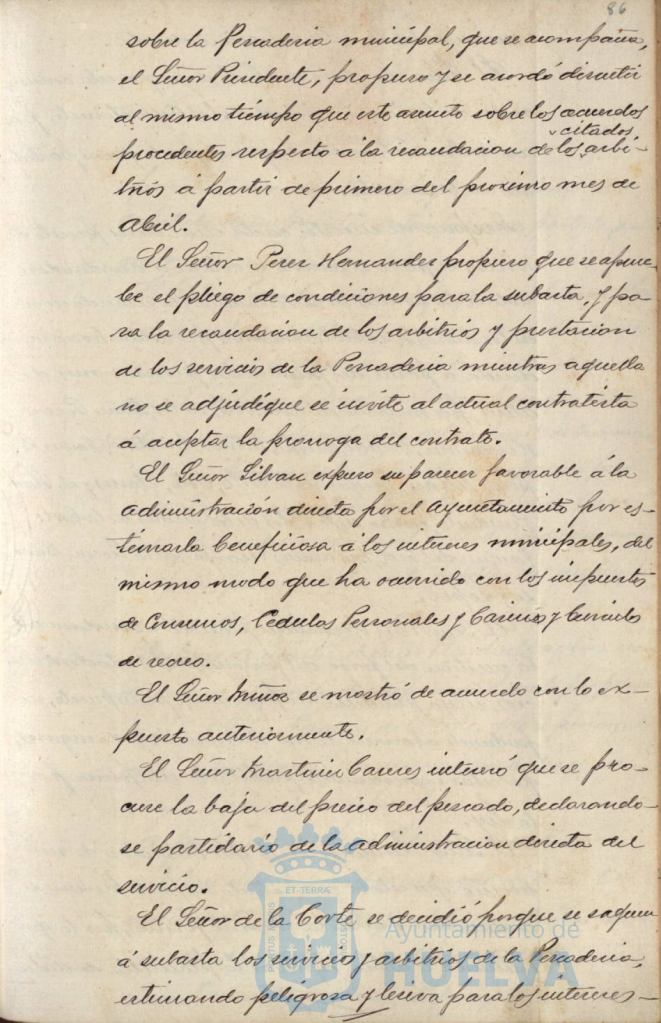 86
sobre la Pescaderia municipal, que se acompaña,
el Señor Presidente, propuso y se acordó discutir
al mismo tiempo que este asunto sobre los acuerdos
citados
procedentes respecto á la recaudacion de los arbi-
trios á partir de primero del proximo mes de
Abril.
El Señor Perez Hernandez propuso que se aprue-
be el pliego de condiciones para la subasta, y pa-
ra la recaudacion de los arbitrios y prestacion
de los servicios de la Pescaderia mientras aquella
no se adjudique se invite al actual contratista
á aceptar la prorroga del contrato.
El Señor Silvan expuso su parecer favorable á la
administración directa por el Ayuntamiento por es-
timarla beneficiosa á los intereses municipales, del
mismo modo que ha ocurrido con los impuestos
de Consumos, Cedulas Personales y Casinos y Circulos
de recreo.
El Señor Muñoz se mostró de acuerdo con lo ex-
puesto anteriormente.
El Señor Martinez Caceres interesó que se pro-
cure la baja del precio del pescado, declarando-
se partidario de la administracion directa del
servicio.
El Señor de la Corte se decidió porque se saquen
á subasta los servicios y arbitrios de la Pescaderia,
estimando peligrosa y lesiva para los intereses
ET TERRÆ
Ayuntamiento de
HUELVA